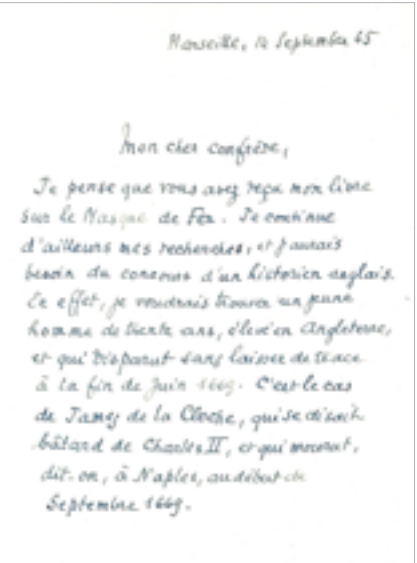 Marseille, 12 Septembre 65
Mon cher confrère,
Je pense que vous avez reçu mon livre
sur le Masque de Fer. Je continue
d'ailleurs mes recherches, et j'aurais
besoin du concours d'un historien anglais.
En effet, je voudrais trouver un jeune
homme de trente ans, élevé en Angleterre,
et qui disparut sans laisser de trace
à la fin de Juin 1669. C'est le cas
de James de la Cloche, qui se disait
bâtard de Charles II, et qui mourut,
dit-on, à Naples, au début de
Septembre 1669.